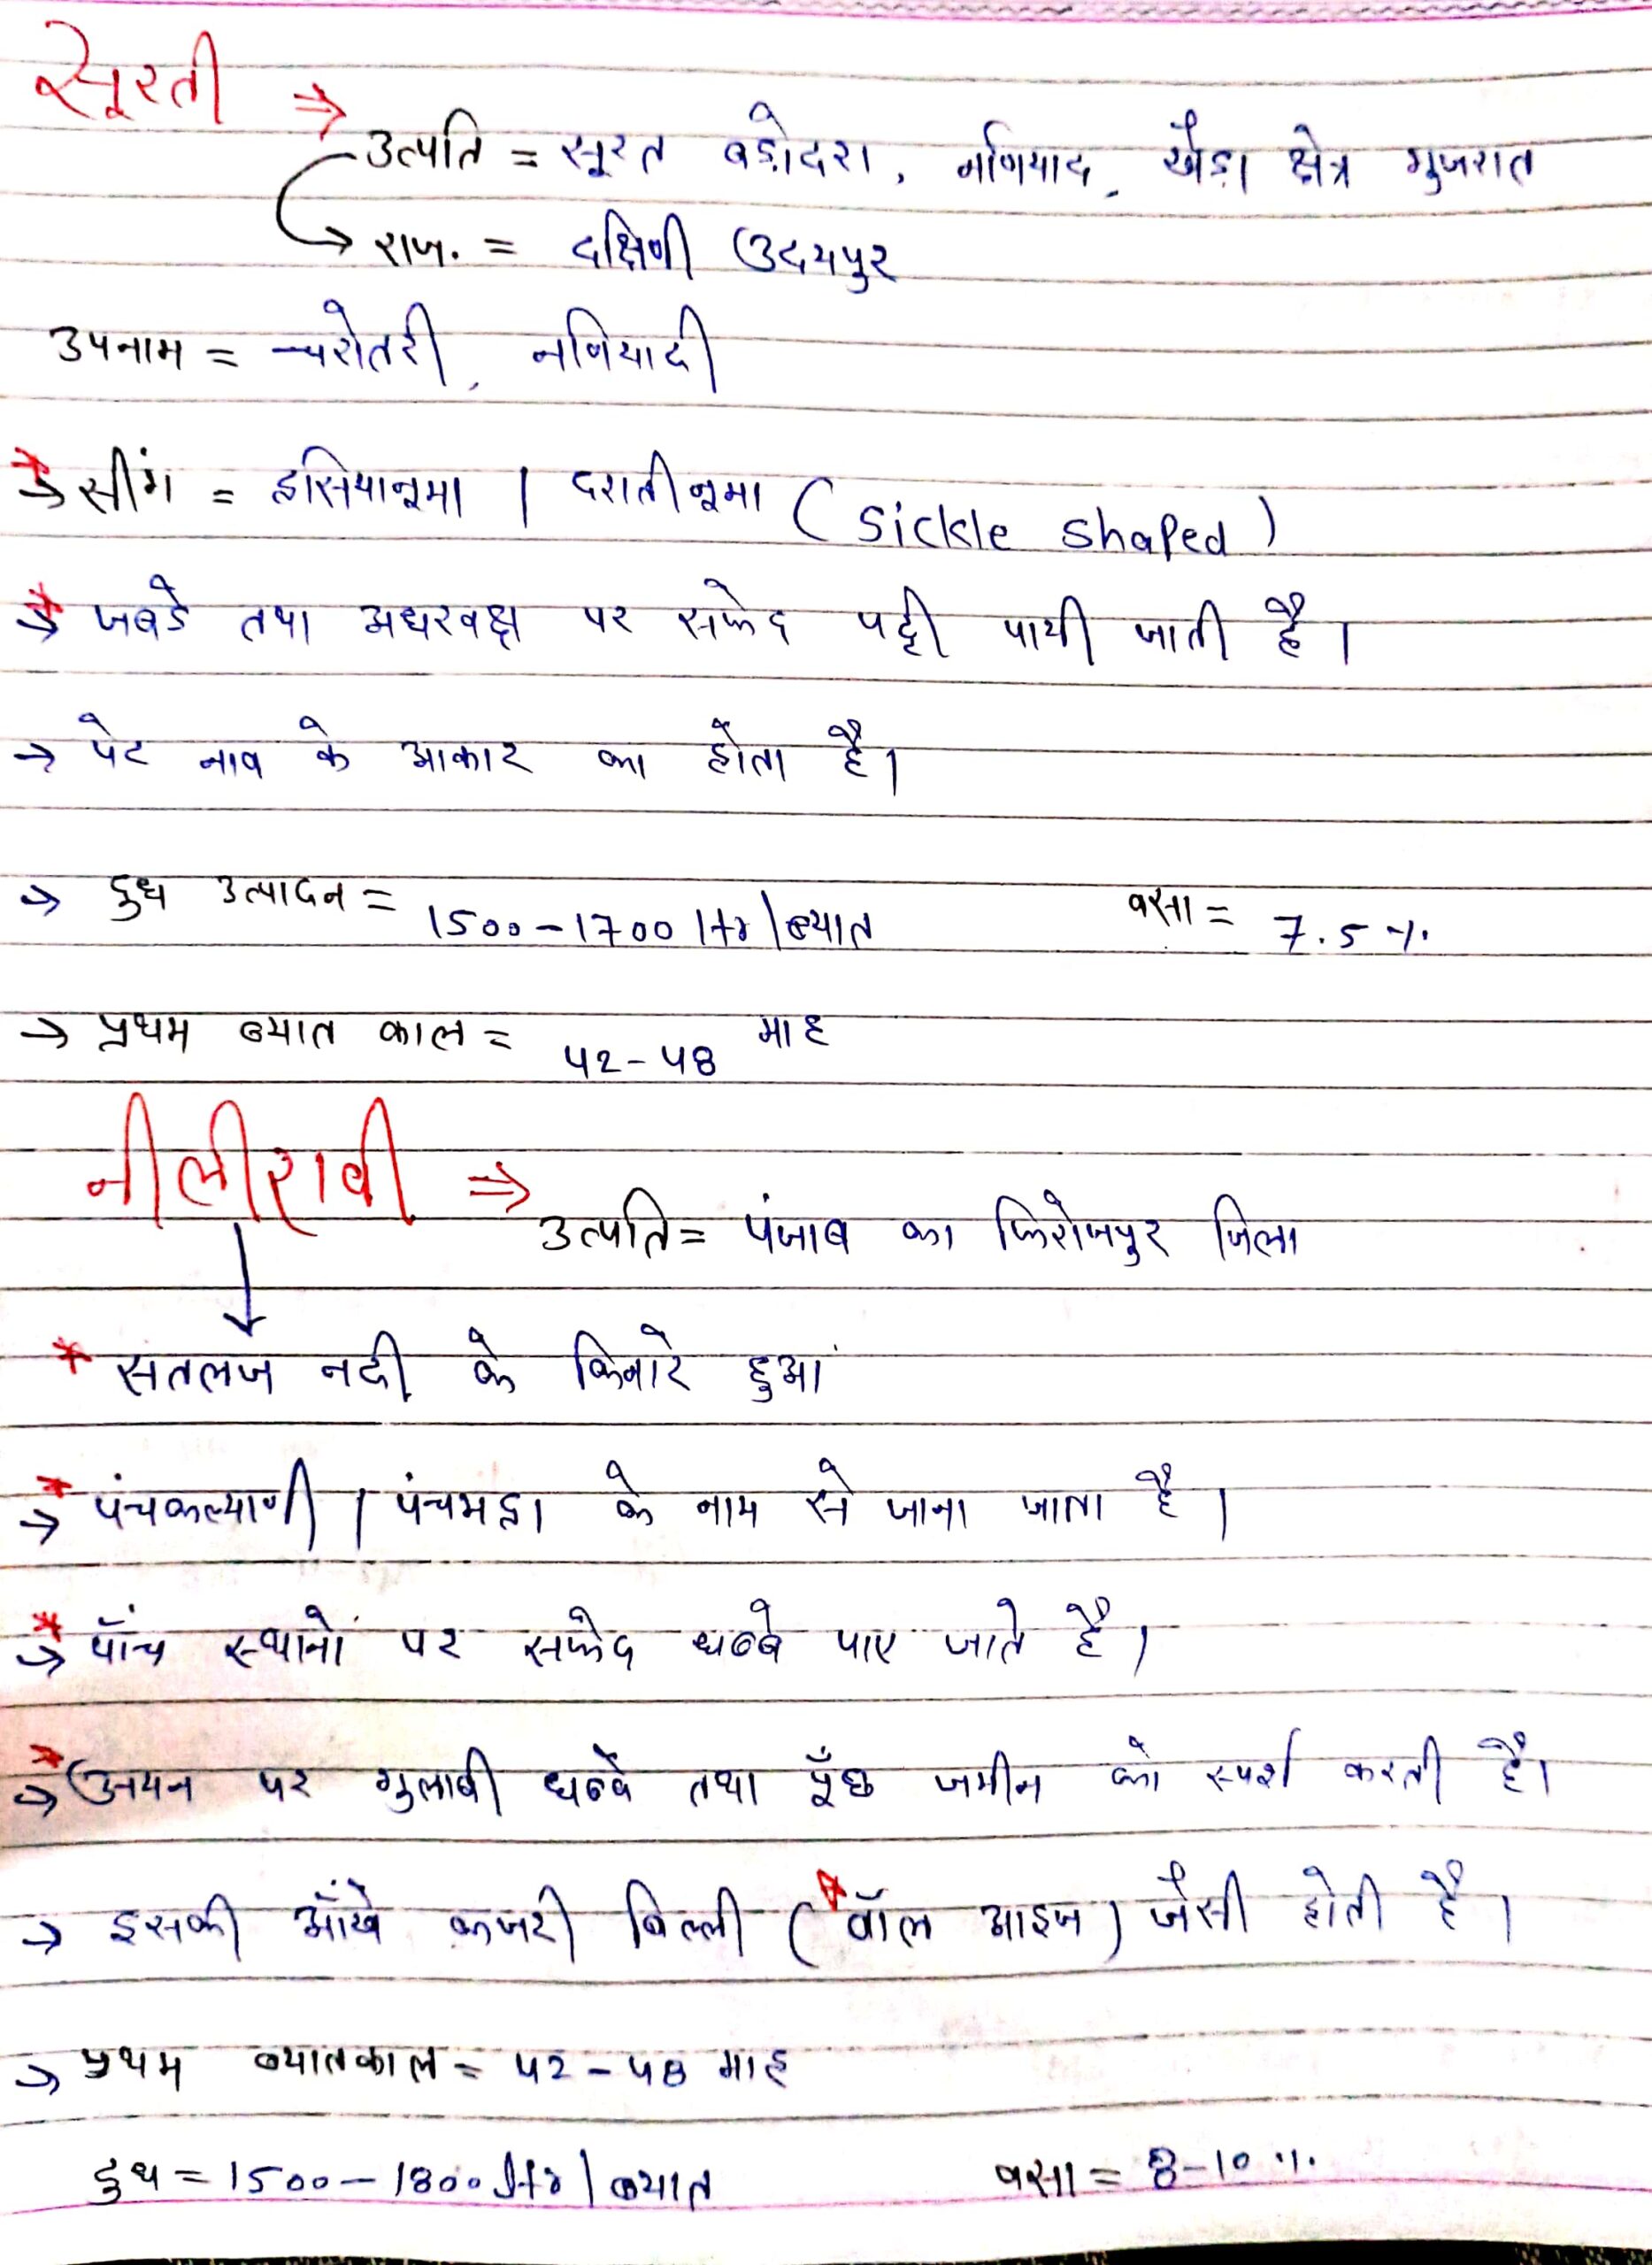 सूरती ⇒
उत्पति = सूरत बडोदरा, नणियाद, खैडा क्षेत्र गुजरात
→ राज. = दक्षिणी उदयपुर
उपनाम = चरोतरी, नणियादी
→ सींग = हसियानूमा | दरातीनूमा (Sickle shaped)
→ जबडे तथा अधरवक्ष पर सफेद पट्टी पायी जाती है।
→ पेट नाव के आकार का होता है।
→ दुध उत्पादन = 1500-1700 ltr | ब्यात वसा = 7.5 %
→ प्रथम ब्यात काल = 42-48 माह
नीलीरावी ⇒
उत्पति = पंजाब का फिरोजपुर जिला
* सतलज नदी के किनारे हुआ
→ पंचकल्याणी | पंचभद्रा के नाम से जाना जाता है।
→ पाँच स्थानों पर सफेद धब्बे पाए जाते है।
→ अयन पर गुलाबी धब्बे तथा पूँछ जमीन को स्पर्श करती है।
→ इसकी आँखे कजरी बिल्ली (वॉल आइज) जैसी होती है।
→ प्रथम ब्यातकाल = 42-48 माह
दुध = 1500-1800 ltr | ब्यात वसा = 8-10 %